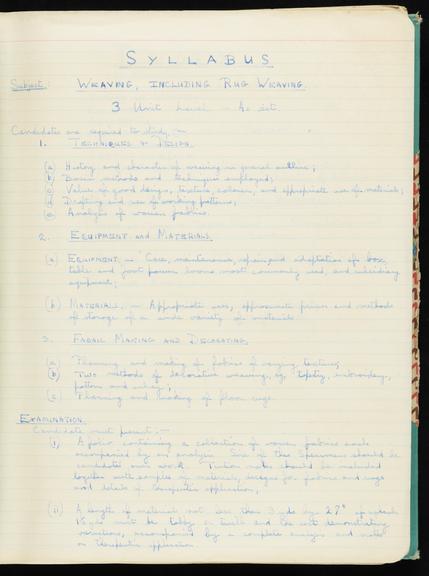 SYLLABUS
Subject: WEAVING, INCLUDING RUG WEAVING.
3 Unit Level
Candidates are required to study :—
1. TECHNIQUES & DESIGN.
(a) History and character of weaving in general outline;
(b) Basic methods and techniques employed;
(c) Value of good design, texture, colour, and appropriate use of materials;
(d) Drafting and use of working patterns;
(e) Analysis of woven fabrics.
2. EQUIPMENT and MATERIALS.
(a) EQUIPMENT Care, maintenance, repair and adaptation of box,
table and foot power looms most commonly used, and subsidiary
equipment;
(b) MATERIALS Appropriate uses, approximate prices and methods
of storage of a wide variety of materials
3. FABRIC MAKING AND DECORATING.
(a) Planning and making of fabrics of varying textures
(b) Two methods of decorative weaving, eg. tapestry, embroidery,
pattern and inlay;
(c) Planning and making of floor rugs.
EXAMINATION.
Candidates must present :—
(i) A folio containing a collection of woven fabrics each
accompanied by an analysis. Some of these specimens should be
candidates own work. notes should be included
together with samples of materials, designs for fabrics and rugs
and details of therapeutic application;
(ii) A length of material not less than 3 yds by 27"
must be tabby or twill and the rest demonstrating
variations, accompanied by a complete analysis and notes
on therapeutic application